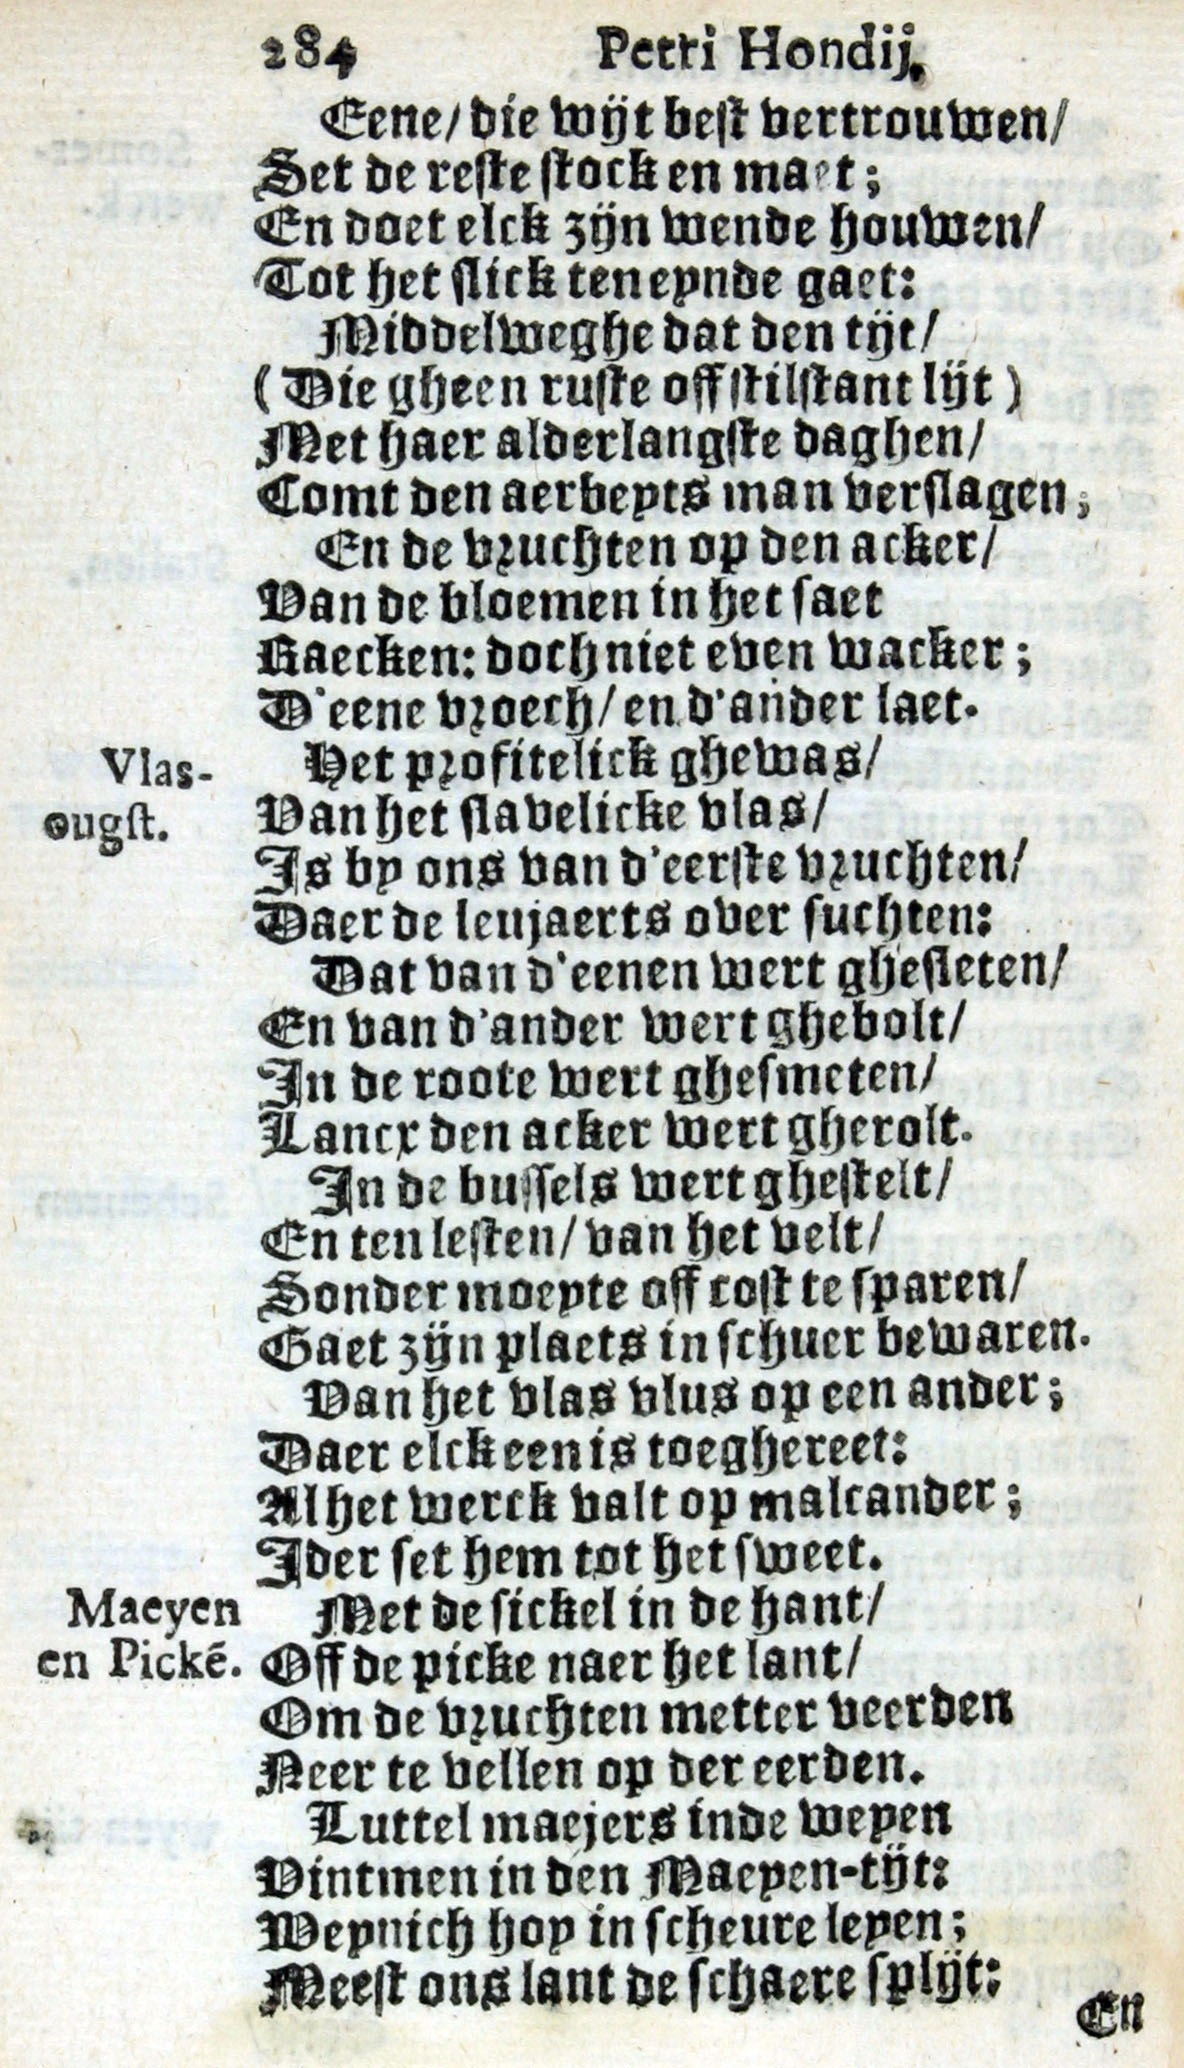 284 Petri Hondij,
Eene/ die wijt best vertrouwen/
Set de reste stock en maet;
En doet elck zijn wende houwen/
Tot het slick ten eynde gaet:
Middelweghe dat den tijt/
(Die gheen ruste off stilstant lijt)
Met haer alderlangste daghen/
Comt den aerbeyts man verslagen;
En de vruchten op den acker/
Van de bloemen in het saet
Raecken: doch niet even wacker;
D'eene vroech/ en d'ander laet.
Vlas-
ougst.
Het profitelick ghewas/
Van het slavelicke vlas/
Is by ons van d'eerste vruchten/
Daer de leujaerts over suchten:
Dat van d'eenen wert ghesleten/
En van d'ander wert ghebolt/
In de roote wert ghesmeten/
Lancx den acker wert gherolt.
In de bussels wert ghestelt/
En ten lesten/ van het velt/
Sonder moeyte off cost te sparen/
Gaet zijn plaets in schuer bewaren.
Van het vlas vlus op een ander;
Daer elck een is toeghereet:
Al het werck valt op malcander;
Ider set hem tot het sweet.
Maeyen
en Pickē.
Met de sickel in de hant/
Off de picke naer het lant/
Om de vruchten metter veerden
Neer te vellen op der eerden.
Luttel maejers inde weyen
Vintmen in den Maeyen-tijt:
Weynich hoy in scheure leyen;
Meest ons lant de schaere splijt:
En